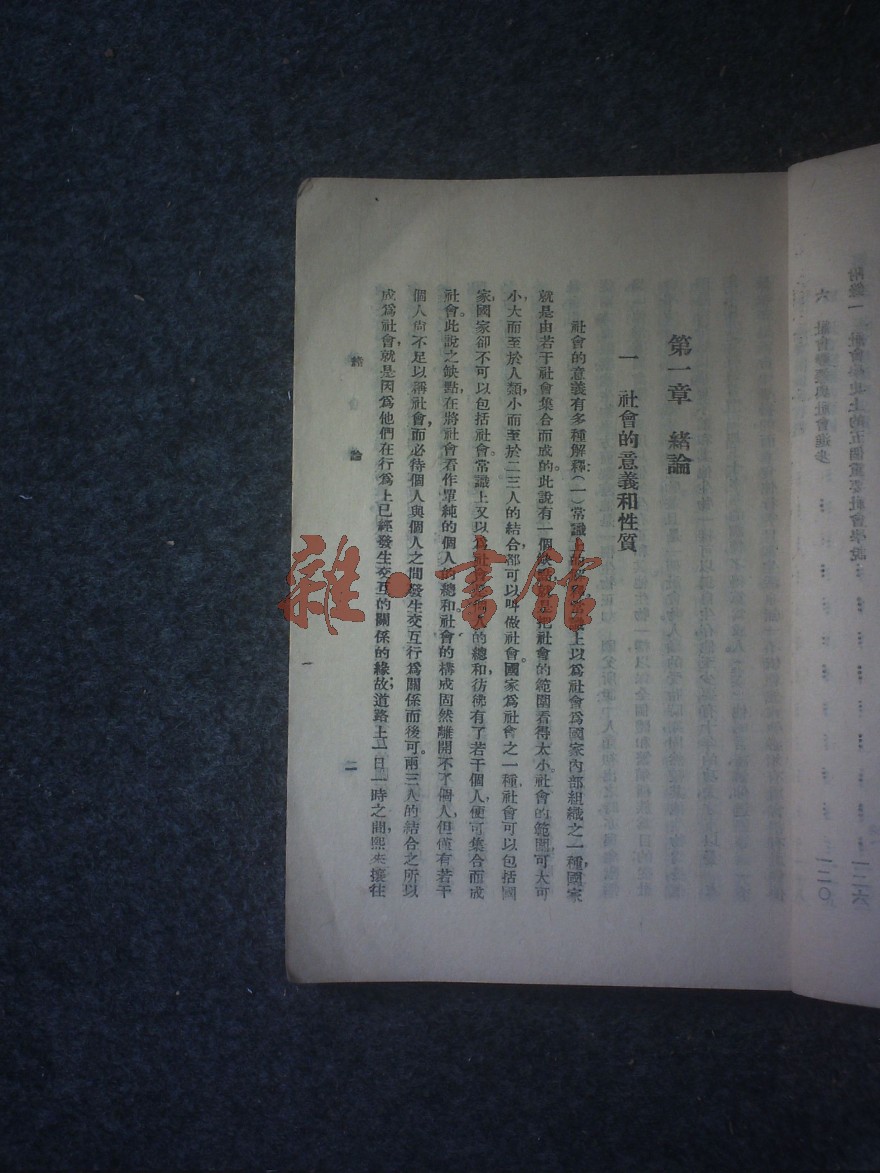 附錄一 社會學史上的五個重要社會學說 一二六
六 社會變遷與社會進步 一二〇
第一章 緒論
一 社會的意義和性質
社會的意義有多種解釋：(一)常識上的 常識上以為社會為國家內部組織之一種，國家
就是由若干社會集合而成的。此說有一個缺點，就是把社會的範圍看得太小。社會的範圍可大可
小，大而至於人類，小而至於二三人的結合，都可以叫做社會。國家為社會之一種，社會可以包括國
家，國家卻不可以包括社會。常識上又以為社會為個人的總和，彷彿有了若干個人，便可集合而成
社會。此說之缺點，在將社會看作單純的個人的總和。社會的構成固然離開不了個人，但僅有若干
個人尚不足以稱社會，而必待個人與個人之間發生交互行為關係而後可。兩三人的結合之所以
成為社會，就是因為他們在行為上已經發生交互的關係的緣故；道路上一日一時之間，熙來攘往
緒論
一
雜·書館